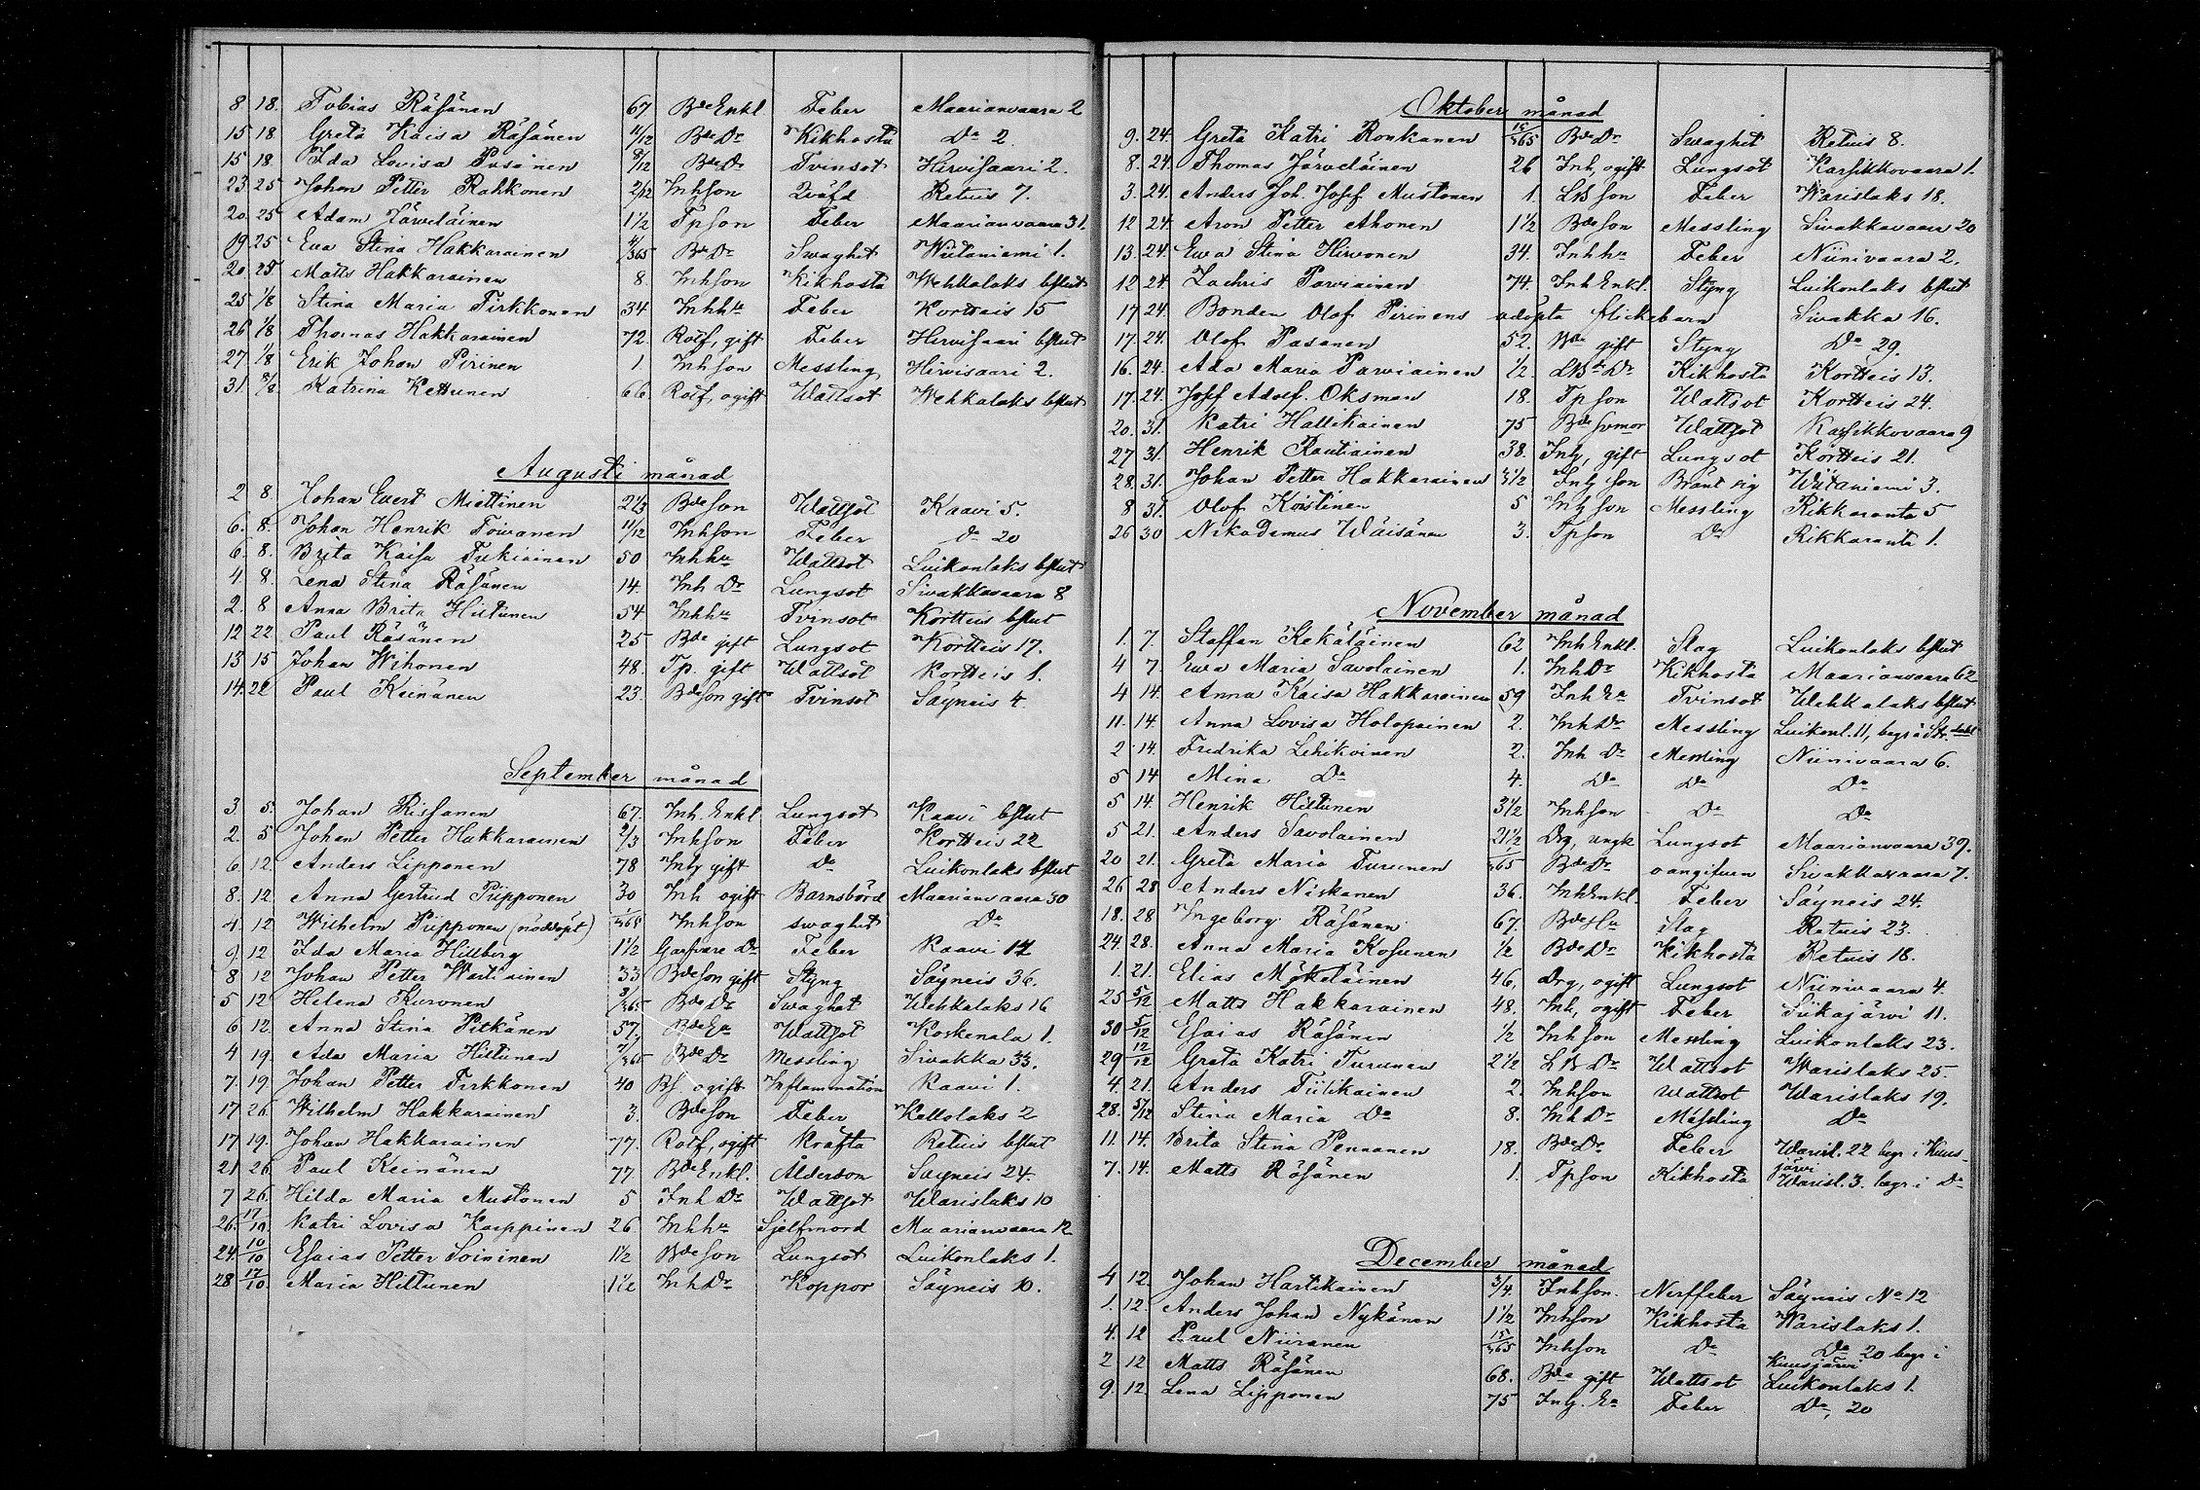 8 18. Tobias Räsänen 67 Bde Enkl Feber Maarianvaara 2
15 18 Greta Kaisa Räsänen 11/12 Bde Dr Kikhosta Do 2.
15 18 Ida Lovisa Pusänen 8/12 Bde Dr Tvinsot Hirvisaari 2.
23 25 Johan Petter Rahkonen 2/12 Inhson Qväfd Retuis 7.
20. 25 Adam Järveläinen 1 1/2 Tpson Feber Maarianvaara 31.
19 25 Eva Stina Hakkarainen /365 Bde Dr Swaghet Wiitaniemi 1.
20. 25 Matts Hakkarainen 8. Inhson Kikhosta Wehkalaks bslut
25 1/8 Stina Maria Tirkkonen 34 Inhhu Feber Kortteis 15
26 1/8 Thomas Hakkarainen 72. Rotf, gift Feber Hirvisaari bslut
27 1/8 Erik Johan Pirinen 1 Inhson Messling Hirvisaari 2.
31. 8/8 Katrina Kettunen 66 Rotf, ogift Wattsot Wehkalaks bslut
Augusti månad
2 8. Johan Evert Miettinen 2 1/3 Bdeson Wattsot Kaavi 5.
6. 8. Johan Henrik Toivanen 11/12 Inhson Feber Do 20
6. 8. Brita Kaisa Tukiainen 50 Inhhu Wattsot Luikonlaks bslut
4. 8. Lena Stina Räsänen 14. Inh Dr Lungsot Sivakkavaara 8
2. 8 Anna Brita Hiltunen 54 Inhhu Tvinsot Kortteis bslut
12 22 Paul Räsänen 25 Bde gift Lungsot Kortteis 17.
13 15 Johan Wihonen 48. Tp. gift Wattsot Kortteis 1.
14. 22 Paul Keinänen 23. Bdeson gift Tvinsot Säyneis 4.
September månad
3 5. Johan Rissanen 67. Inh. Enkl Lungsot Kaavi bslut
2. 5 Johan Petter Hakkarainen 2/3 Inhson Feber Kortteis 22
6 12. Anders Lipponen 78 Inhy gift Do Luikonlaks bslut
8. 12. Anna Gertrud Piipponen 30 Inh ogift Barnsbörd Maarianvaara 30
4. 12 Wilhelm Piipponen (nöddöpt) 1/365 Inhson swaghet Do
9 12 Ida Maria Hillberg 1 1/2 Garfvare Dr Feber Kaavi 14
8 12 Johan Petter Wartiainen 33 Bdeson gift Styng Säyneis 36.
5 12 Helena Kuronen 8/365 Bde Dr Swaghet Wehkalaks 16
6 12. Anna Stina Pitkänen 57. Bde Ea Wattsot Koskenala 1.
4 19. Ada Maria Hiltunen 7/365 Bde Dr Messling Sivakka 33.
7. 19 Johan Petter Tirkkonen 40 Bs ogift Inflammation Kaavi 1.
17 26. Wilhelm Hakkarainen 3. Bdeson Feber Kallolaks 2
17 19. Johan Hakkarainen 77. Rotf, ogift Kräfta Retuis bslut
21 26 Paul Keinänen 77. Bde Enkl. Ålderdom Säyneis 24.
7 26. Hilda Maria Mustonen 5 Inh Dr Wattsot Warislaks 10
26. 17/10 Katri Lovisa Karppinen 26 Inhhu Sjelfmord Maarianvaara 12
24 10/10 Esaias Petter Soininen 1 1/2 Bdeson Lungsot Luikonlaks 1.
28 17/10 Maria Hiltunen 1 1/2 Inh Dr Koppor Säyneis 10.
Oktober månad
9. 24. Greta Katri Ronkanen 15/365 Bde Dr Swaghet Retuis 8.
8. 24 Thomas Järveläinen 26 Inh, ogift Lungsot Karsikkovaara 1.
3. 24. Anders Joh. Josef Mustonen 1. LB son Feber Warislaks 18.
12 24. Aron Petter Ahonen 1 1/2 Bdeson Messling Sivakkavaara 20
13. 24. Eva Stina Hirvonen 34. Inhhu Feber Niinivaara 2.
12 24. Zachris Parviainen 74. Inh Enkl. Styng Luikonlaks bslut
17 24. Bonden Olof Pirinens odöpta flickebarn Sivakka 16.
17. 24. Olof Pasanen 52. Bde gift Styng Do 29.
16. 24. Ada Maria Parviainen 1/2. LBde Dr Kikhosta Kortteis 13.
17. 24. Josef Adolf Oksman 18. Tpson Wattsot Kortteis 24.
20. 31. Katri Hallikainen 75 Bde svmor Wattsot Karsikkovaara 9
27 31. Henrik Rautiainen 38. Inhy, gift Lungsot Kortteis 21.
28. 31. Johan Petter Hakkarainen 3 1/2 Inhy son Bränt sig Wiitaniemi 3.
8 31. Olof Koistinen 5 Inhy son Messling Rikkaranta 5
26 30 Nikodemus Wäisänen 3. Tpson Do Rikkaranta 1.
November månad
1. 7. Staffan Kekäläinen 62 Inh Enkl. Slag Luikonlaks bslut
4 7 Ewa Maria Savolainen 1. Inh Dr Kikhosta Maarianvaara 62
4 14. Anna Kaisa Hakkarainen 59 Inh Ea Tvinsot Wehkalaks bslut
11. 14 Anna Lovisa Holopainen 2. Inh Dr Messling Luikonl. 11, begr i
2. 14. Fredrika Lehikoinen 2. Inh Dr Messling Niinivaara 6.
5 14 Mina Do 4. Do Do Do
5 14. Henrik Hiltunen 3 1/2 Inhson Do Do
5 21. Anders Savolainen 21 1/2 Drg, ungk Lungsot Maarianvaara 39.
20 21. Greta Maria Turunen 1/365 Bde Dr oangifven Sivakkavaara 7.
26 28 Anders Niskanen 36. Inh Enkl. Feber Säyneis 24.
18. 28 Ingeborg Räsänen 67. Bde Hu Slag Retuis 23.
24 28. Anna Maria Kosunen 1/2 Bde Dr Kikhosta Retuis 18.
1. 21. Elias Mäkeläinen 46, Drg, ogift Lungsot Niinivaara 4.
25 5/12 Matts Hakkarainen 48. Inh, ogift Feber Siikajärvi 11.
30 5/12 Esaias Räsänen 1/2 Inhson Messling Luikonlaks 23.
29 12/12 Greta Katri Turunen 2 1/2 LB Dr Wattsot Warislaks 25.
4 21. Anders Tiilikainen 2. Inhson Wattsot Warislaks 19.
28. 5/12 Stina Maria Do 8. Inh Dr Messling Do
11. 14. Brita Stina Pennanen 18. Bde Dr Feber Warisl. 22 begr i Kuus-
järvi
7. 14. Matts Räsänen 1. Tpson Kikhosta Warisl. 3. begr i Do
December månad
4 12. Johan Hartikainen 3/4. Inhson. Nerffeber Säyneis No 12
1. 12. Anders Johan Nykänen 1 1/2 Inhson Kikhosta Warislaks 1.
4. 12 Paul Niiranen 15/365 Inhson Do Do 20 begr i
Kuusjärvi
2 12 Matts Räsänen 68. Bde gift Wattsot Luikonlaks 1.
9. 12 Lena Lipponen 75 Inhy. Ea Feber Do, 20